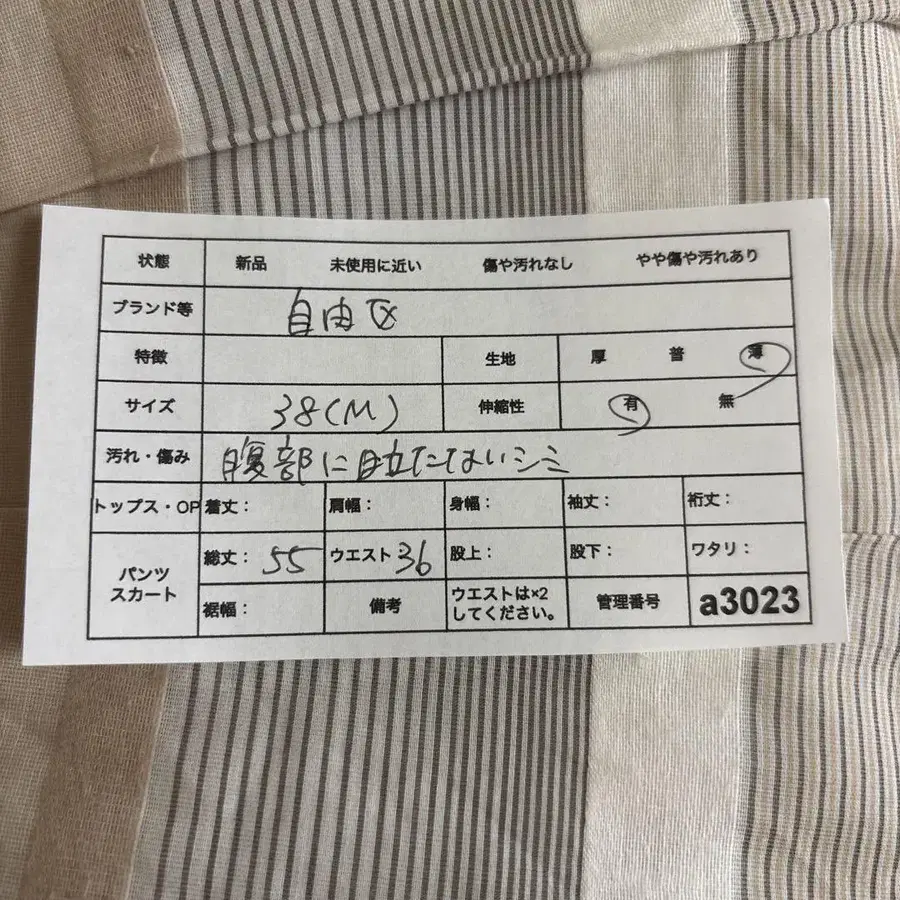 状態 新品 未使用に近い 傷や汚れなし やや傷や汚れあり
ブランド等 自由区
特徴 生地 厚 普 薄
サイズ 38(M) 伸縮性 有 無
汚れ・傷み 腹部に目立たないシミ
トップス・OP 着丈: 肩幅: 身幅: 袖丈: 裄丈:
パンツ
スカート
総丈: 55 ウエスト 36 股上: 股下: ワタリ:
裾幅: 備考 ウエストは×2
してください。 管理番号 a3023